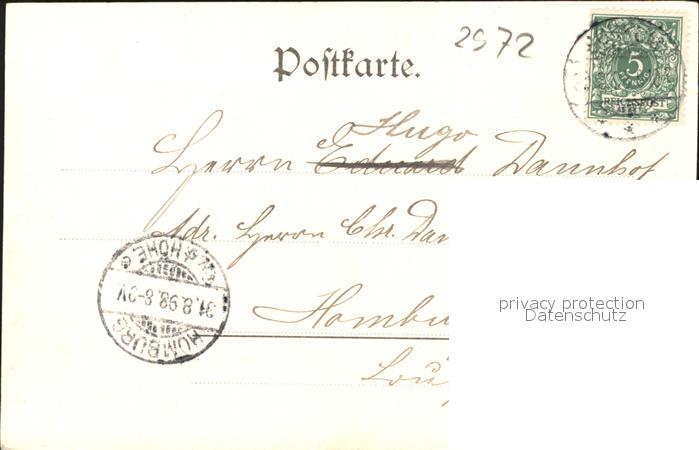 2972
Postkarte.
5
PFENNIG
REICHSPOST
Hugo
Herrn Eduard Dannhof
Adr. Herrn Chr. Dan
Hombu
Lou
HOMBURG
31.8.98. 8-9V.
HÖHE
privacy protection
Datenschutz